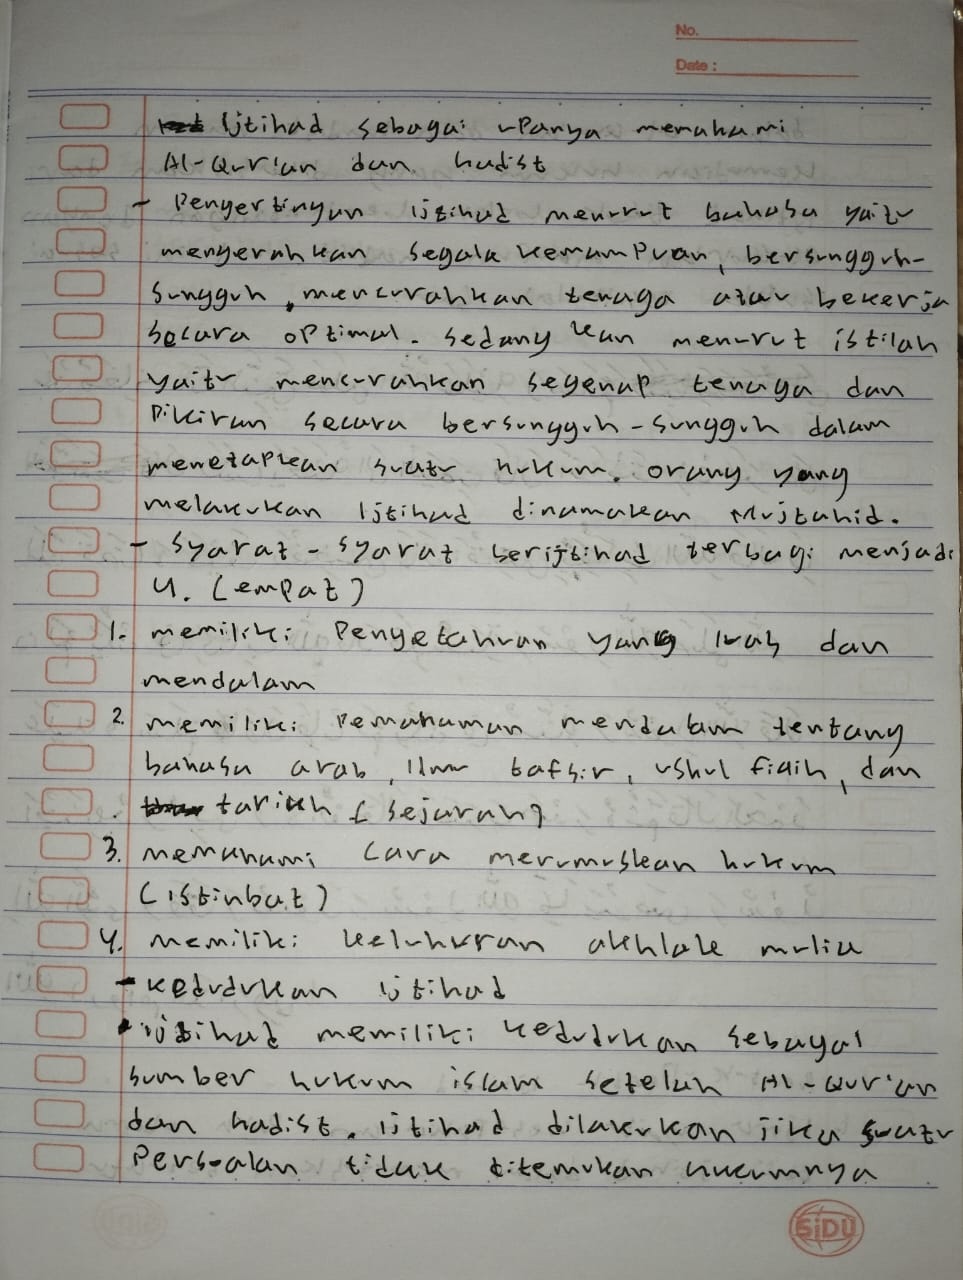 No.
Date :
Ijtihad sebagai upanya memahami
Al-Qur'an dan hadist
- Pengertingyan ijtihad menurut bahasa yaitu
mengerahkan segala kemampuan, bersunggguh-
sungguh, mencurahkan tenaga atau bekerja
secara optimal. sedangkan menurut istilah
yaitu mencurahkan segenap tenaga dan
Pikiran secara bersungguh-sungguh dalam
menetapkan suatu hukum. orang yang
melakukan Ijtihad dinamakan Mujtahid.
- Syarat-syarat berijtihad terbagi menjadi
4. (empat)
1. memiliki Pengetahuan yang luas dan
mendalam
2. memiliki Pemahaman mendalam tentang
bahasa arab, Ilmu tafsir, ushul fiqih, dan
tarikh (sejarah)
3. memahami cara merumuskan hukum
(istinbat)
4. memiliki keluhuran akhlak mulia
- kedudukan ijtihad
• ijtihad memiliki kedudukan sebagai
sumber hukum islam setelah Al-Qur'an
dan hadist. ijtihad dilakukan jika suatu
Persoalan tidak ditemukan hukumnya
SiDU